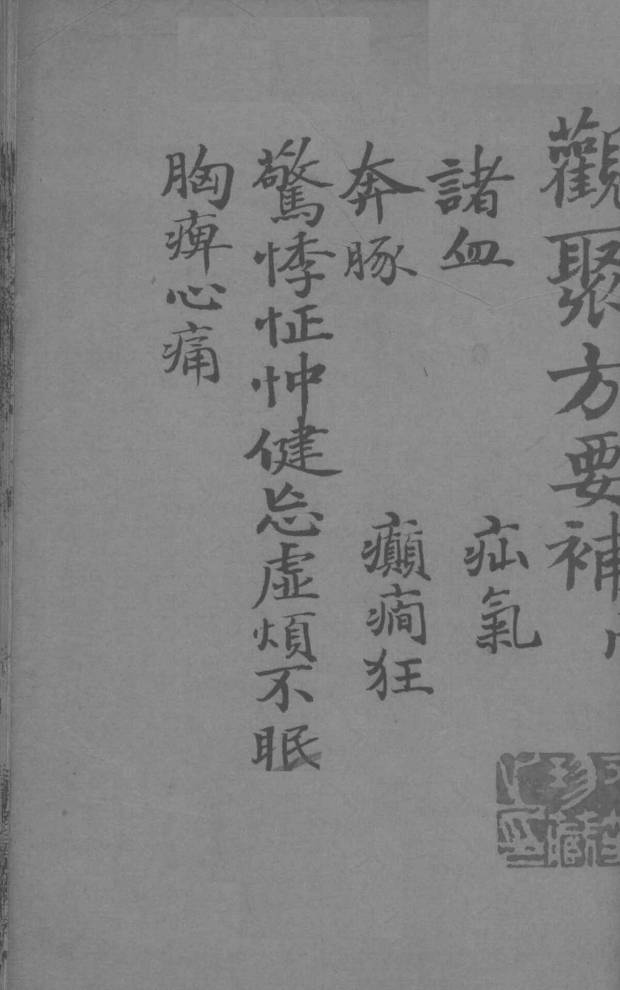 觀聚方要補
諸血
疝氣
奔豚
癲癇狂
驚悸怔忡健忘虛煩不眠
胸痺心痛